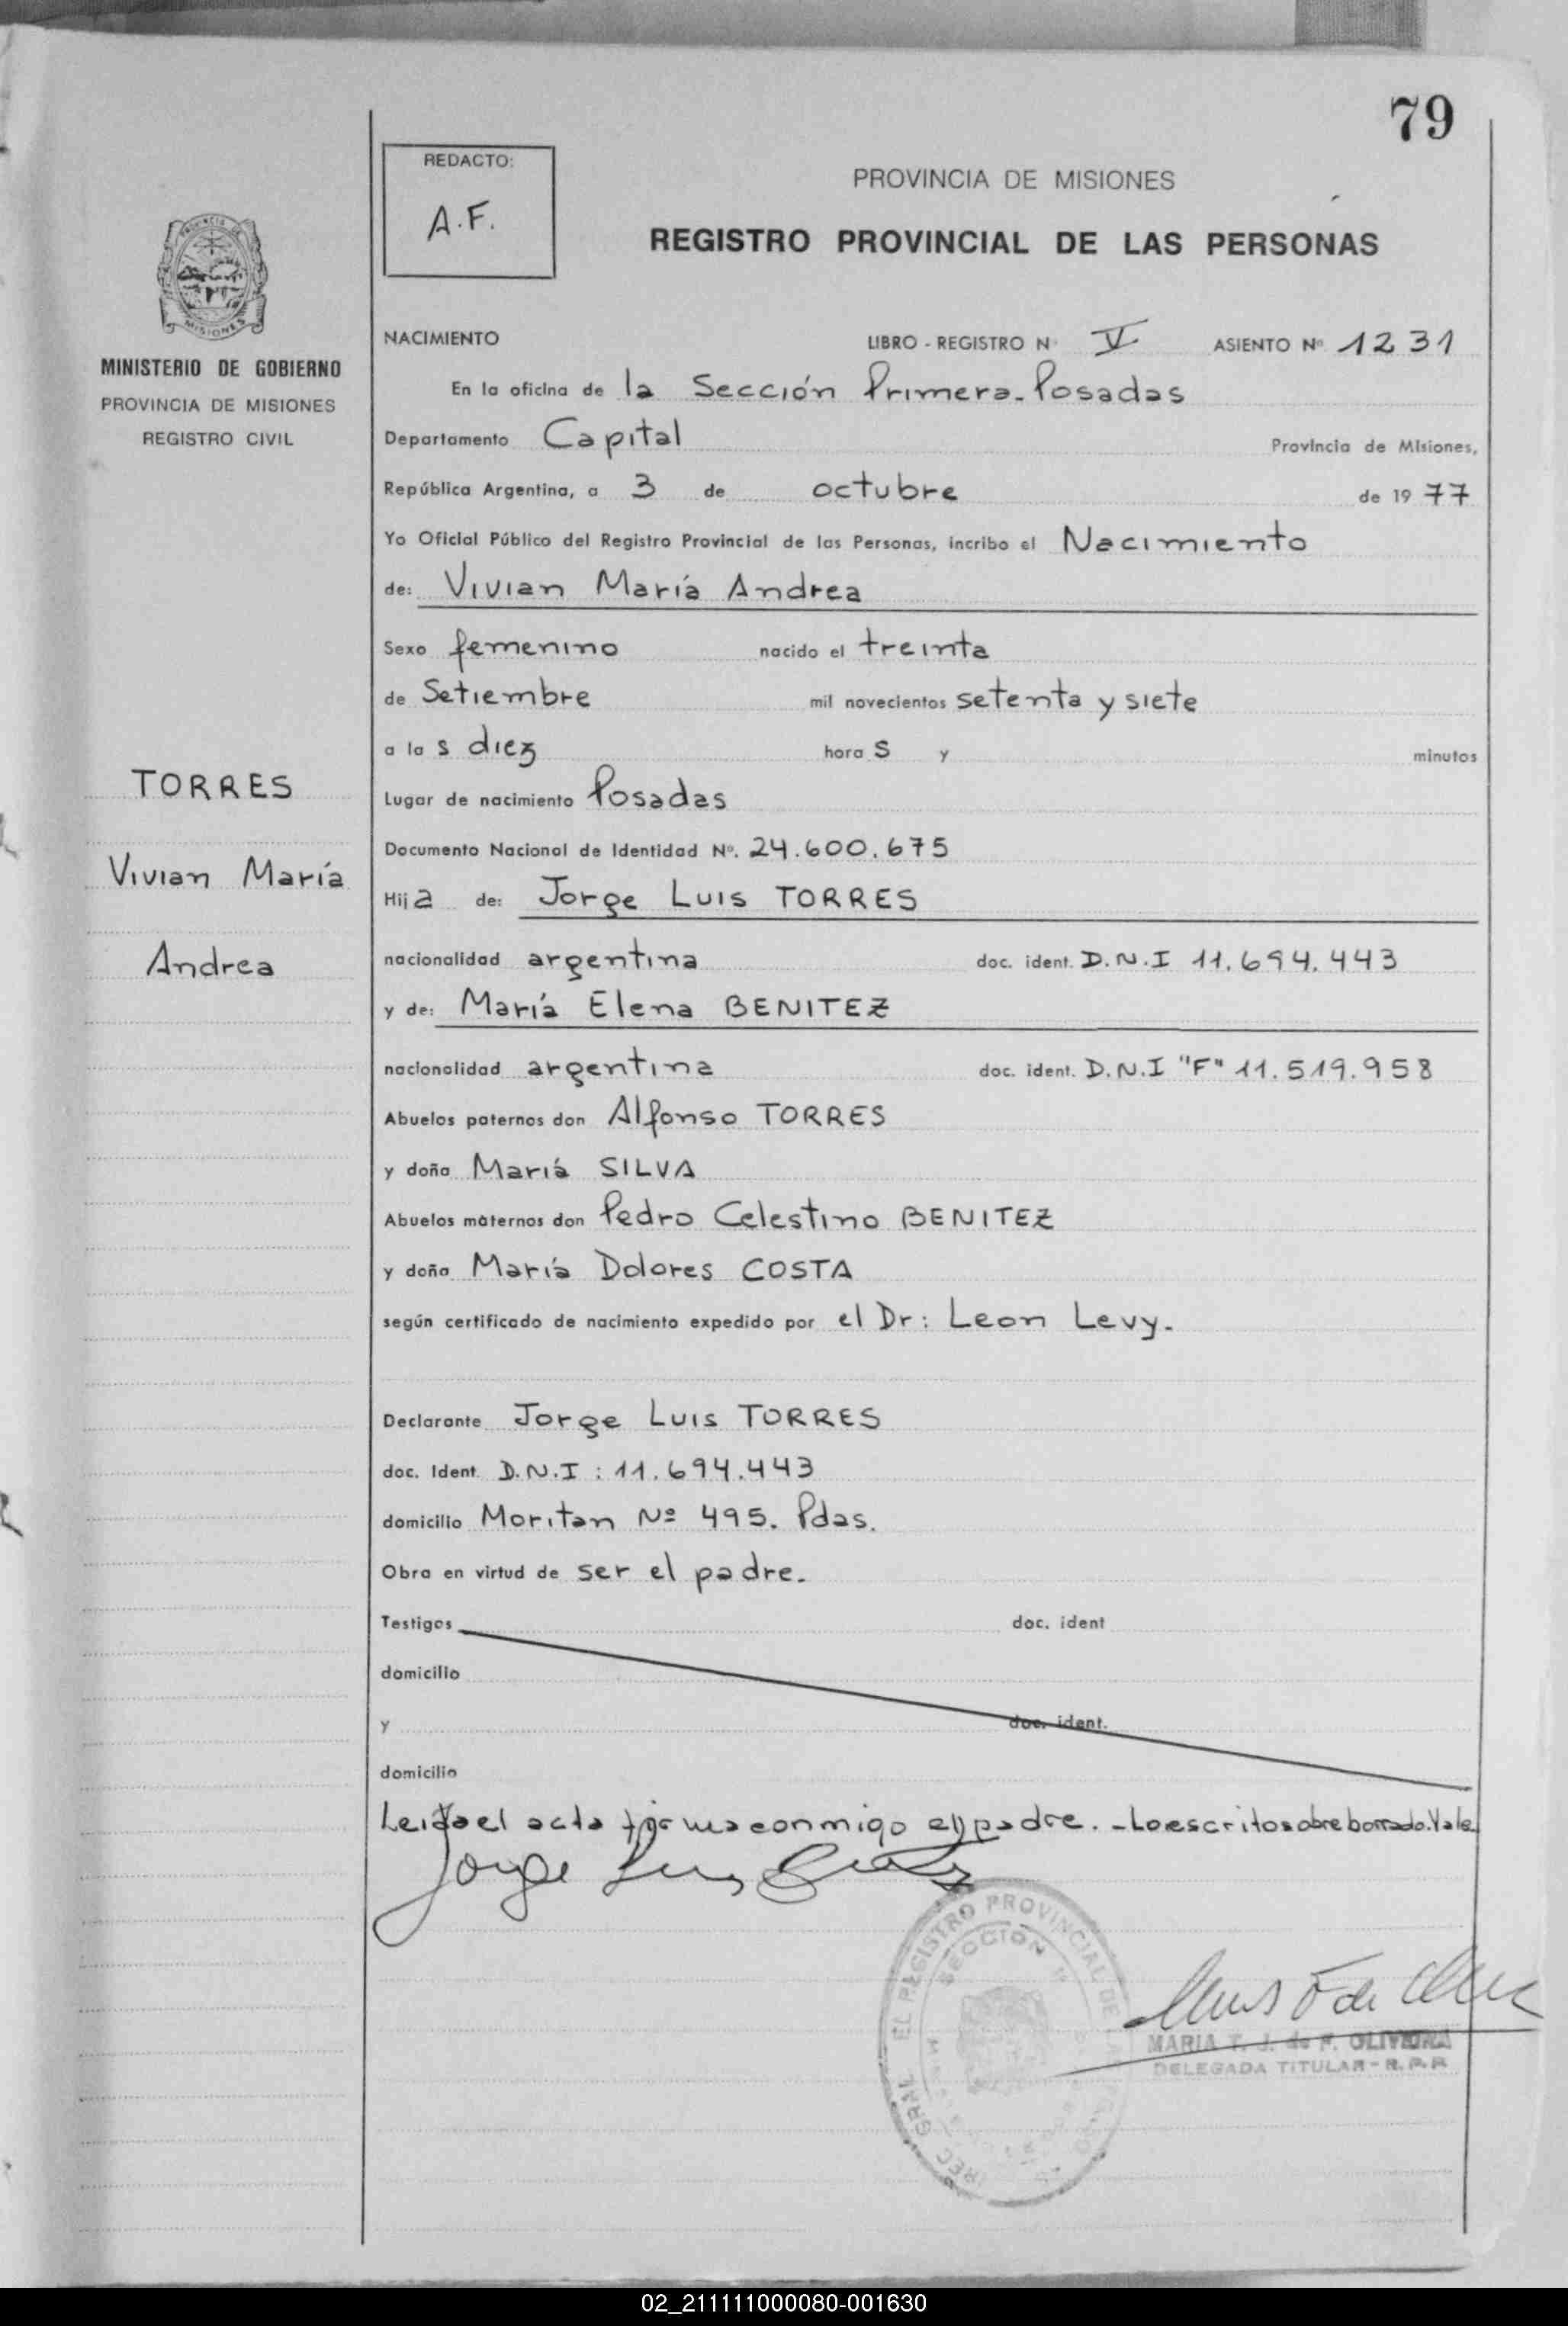 79
REDACTO:
A.F.
PROVINCIA DE MISIONES
REGISTRO PROVINCIAL DE LAS PERSONAS
PROVINCIA DE
MISIONES
MINISTERIO DE GOBIERNO
PROVINCIA DE MISIONES
REGISTRO CIVIL
TORRES
Vivian María
Andrea
NACIMIENTO LIBRO - REGISTRO N° V ASIENTO Nº 1231
En la oficina de la Sección Primera - Posadas
Departamento Capital Provincia de Misiones,
República Argentina, a 3 de octubre de 1977
Yo Oficial Público del Registro Provincial de las Personas, incribo el Nacimiento
de: Vivian María Andrea
Sexo femenino nacido el treinta
de Setiembre mil novecientos setenta y siete
a las diez horas y minutos
Lugar de nacimiento Posadas
Documento Nacional de Identidad Nº. 24.600.675
Hija de: Jorge Luis TORRES
nacionalidad argentina doc. ident. D.N.I 11.694.443
y de: María Elena BENITEZ
nacionalidad argentina doc. ident. D.N.I "F" 11.519.958
Abuelos paternos don Alfonso TORRES
y doña María SILVA
Abuelos maternos don Pedro Celestino BENITEZ
y doña María Dolores COSTA
según certificado de nacimiento expedido por el Dr: Leon Levy.
Declarante Jorge Luis TORRES
doc. Ident. D.N.I : 11.694.443
domicilio Moritan Nº 495. Pdas.
Obra en virtud de ser el padre.
Testigos doc. ident
domicilio
y doc. ident.
domicilio
Leida el acta firma conmigo el padre. - Lo escrito sobre borrado. Vale
Jorge Luis
REC GRAL EL REGISTRO PROVINCIAL DE LAS
SECCION 1ª
MARIA T. J. de F. OLIVEIRA
DELEGADA TITULAR - R.P.P.
02_211111000080-001630